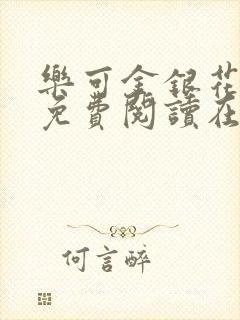 樂可金銀花
免費閱讀在
何言醉